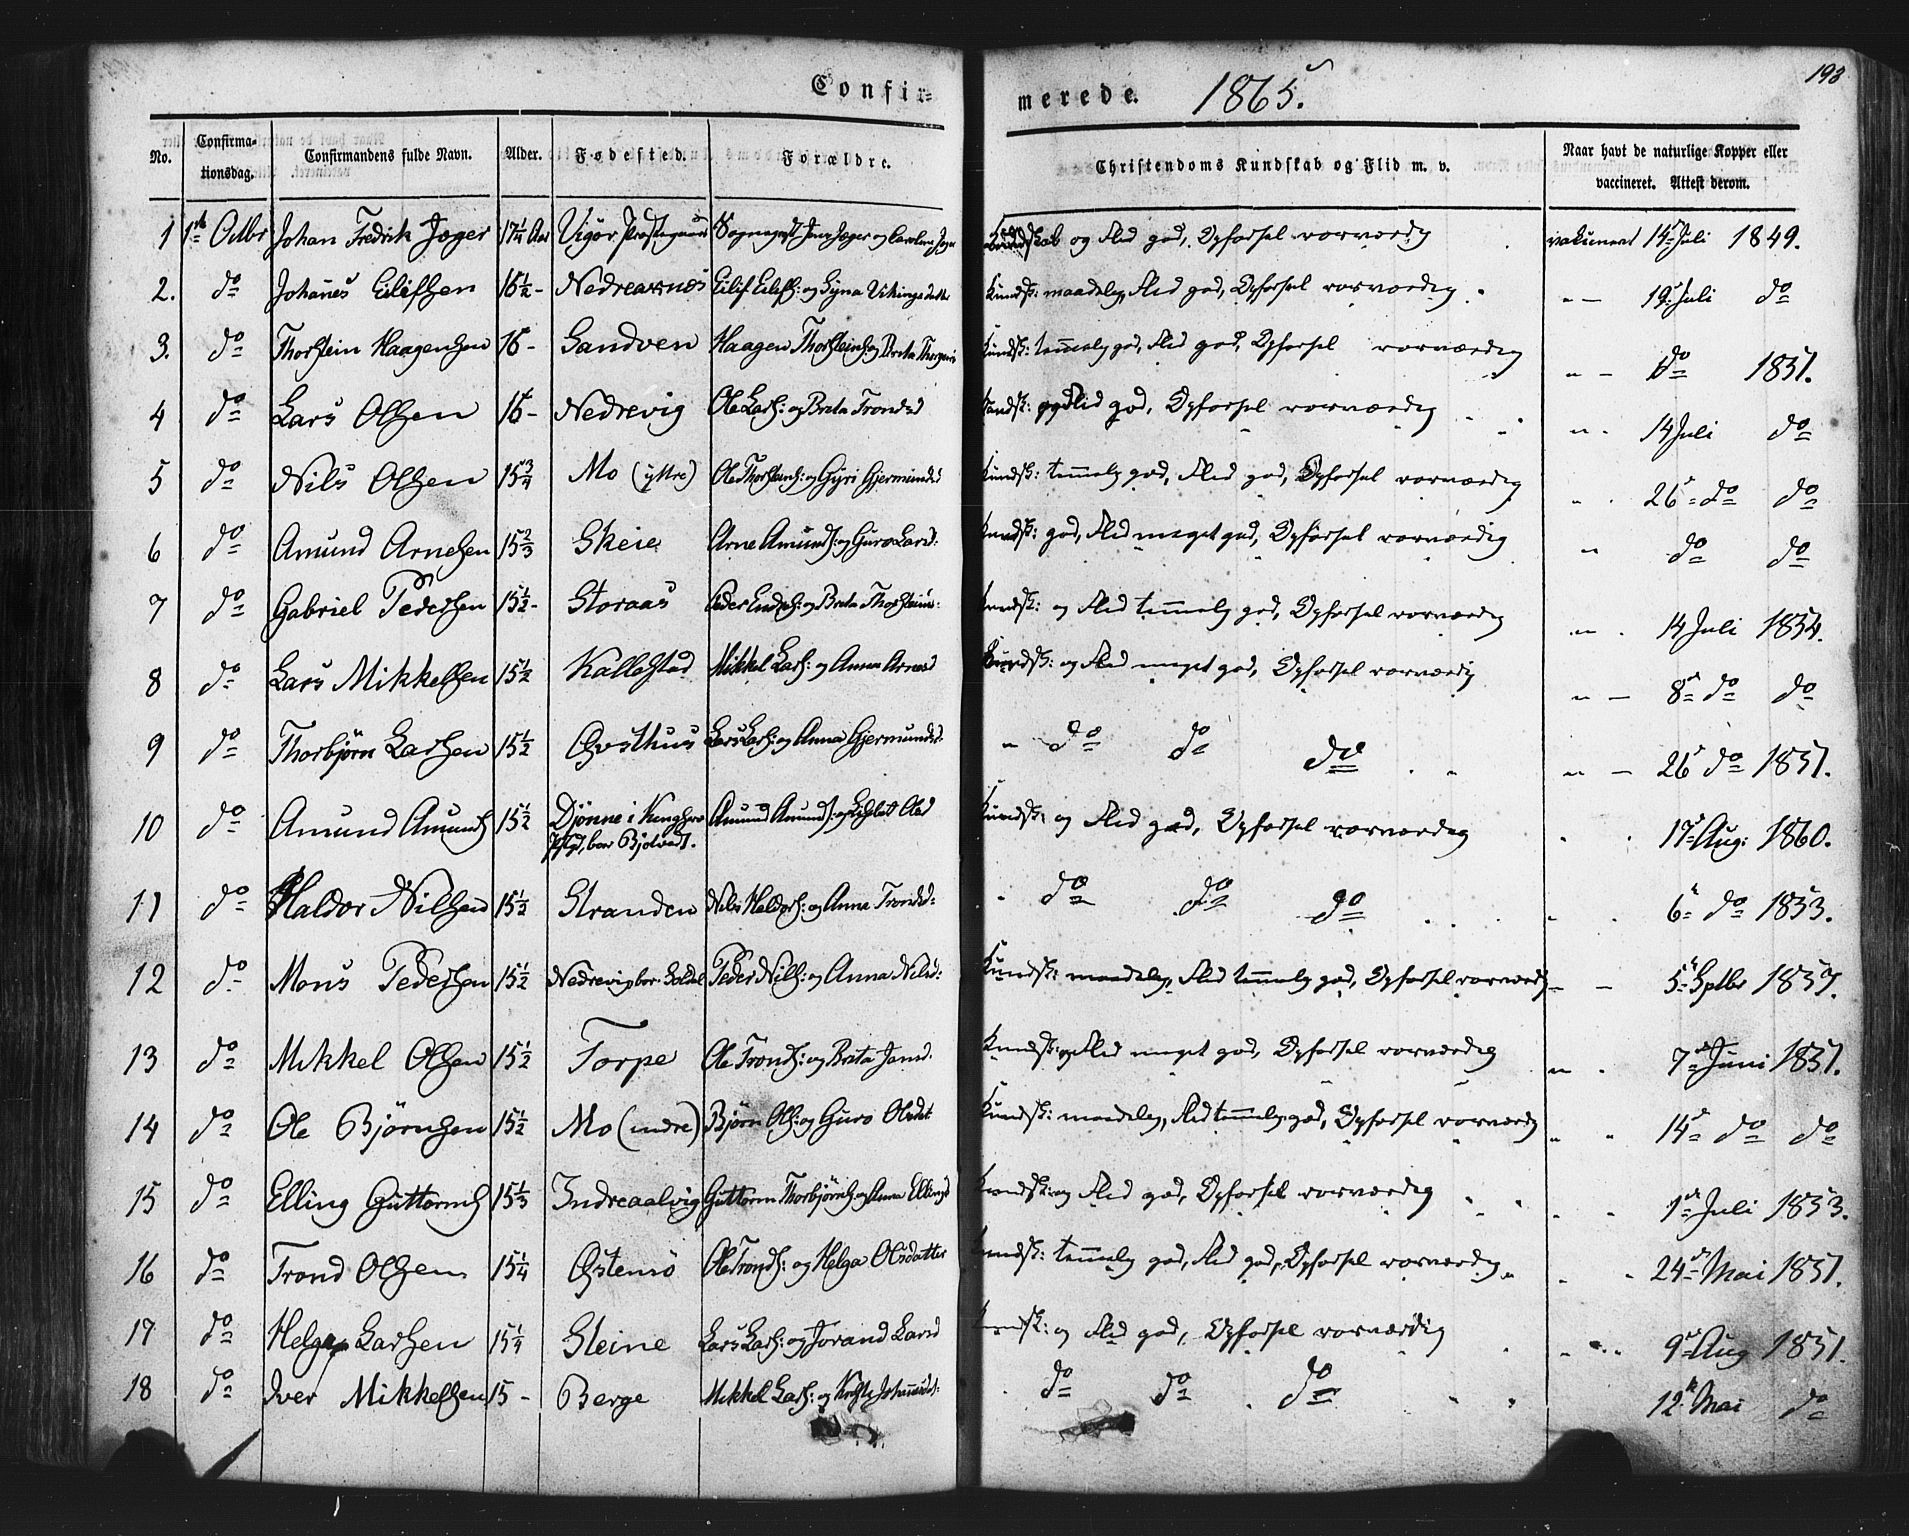 Confir- merede. 1865. 193
No. Confirma-tionsdag. Confirmandens fulde Navn. Alder. Fødested. Forældre. Christendoms Kundskab og Flid m. v. Naar havt de naturlige Kopper eller vaccineret. Attest derom.
1 1ste Octbr Johan Fredrik Jæger 17¼ Aar Vigør Sognepræst Jens Jæger og Caroline Kundskab og Flid god, Opførsel vorværdig vakcineret 14d Juli 1849.
2. do Johanes Eilifsen 16½ - Nedreaxnes Eilif Eilifs: og Kundsk: maadelig, Flid god, Opførsel vorværdig. " — 19d Juli do
3. do Thorstein Haagensen 16 - Sandven Haagen Thorsteins: og Brita Kundsk: temmelig god, Flid god, Opførsel vorværdig " — do 1851.
4 do Lars Olsen 16 - Nedrevig Ole Lars: og Brita Trondsd Kundsk: og Flid god, Opførsel vorværdig " . 14 Juli do
5 do Nils Olsen 15¾ Mo (ytre) Ole Thorsteins: og Gyri Gjermundsd Kundsk: temmelig god, Flid god, Opførsel vorværdig " . 26d do do
6 do Amund Arnesen 15⅔ Skeie Arne Amunds: og Guro Larsd: Kundsk: god, Flid meget god, Opførsel vorværdig " do do
7 do Gabriel Pedersen 15½ - Storaas Peder Endres: og Brita Thorsteinsd: Kundsk: og Flid temmelig god, Opførsel vorværdig " . 14 Juli 1854.
8 do Lars Mikkelsen 15½ Kallestad Mikkel Lars: og Anna Arnesd Kundsk: og Flid meget god, Opførsel vorværdig " — 8d do do
9 do Thorbjørn Larsen 15½ Østhus Lars Lars: og Anna Gjermundsd: " do do do " — 26d do 1851.
10 do Amund Amunds 15½ Djønne i Kingservs Pgjd, bor Amund Amunds: og Olsd Kundsk: og Flid god, Opførsel vorværdig 17d Aug: 1860.
11 do Haldor Nilsen 15½ Stranden Nils Haldors: og Anna Trondsd: do do do 6te do 1853.
12 do Mons Pedersen 15½ Nedrevig bor. Peder Nils: og Anna Nilsd: Kundsk: maadelig, Flid temmelig god, Opførsel vorværdig " — 5te Sptbr 1857.
13 do Mikkel Olsen 15½ Torpe Ole Tronds: og Brita Jansd. Kundsk: og Flid meget god, Opførsel vorværdig " . 7de Juni 1851.
14 do Ole Bjørnsen 15½ Mo (indre) Bjørn Ols: og Guro Olsdat Kundsk: maadelig, Flid temmelig god, Opførsel vorværdig " " 14d do do
15 do Elling Guttorms 15⅓ Indreaalvig Guttorm Thorbjørns og Anna Ellingsd Kundsk: og Flid god, Opførsel vorværdig " . 1ste Juli 1853.
16 do Trond Olsen 15¼ Østensø Ole Tronds: og Helga Olsdatter Kundsk: temmelig god, Flid god, Opførsel vorværdig 24de Mai 1851.
17 do Helge Larsen 15¼ Steine Lars Lars: og Jorand Larsd Kundsk: og Flid god, Opførsel vorværdig 9d Aug 1851.
18 do Iver Mikkelsen 15 - Berge Mikkel Lars: og do do do 12te Mai do